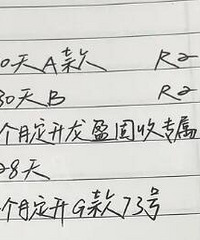 0天A款 R2
30天B R2
个月定开龙盈固收专属
28天
个月定开G款73号